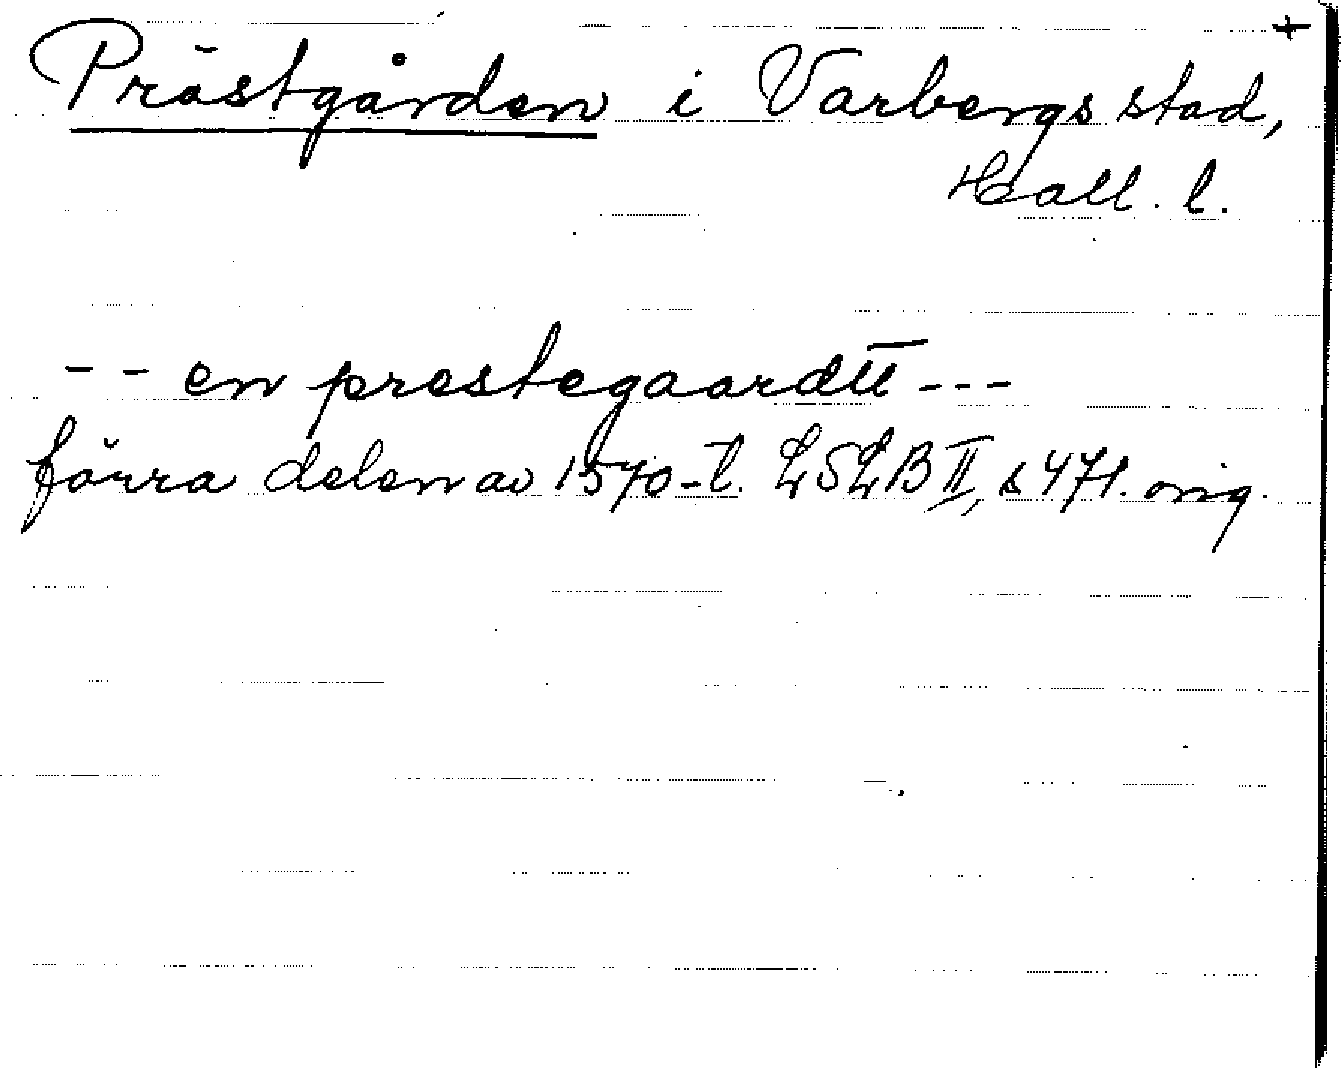 +
Prästgården i Varbergs stad,
Hall. l.
-- en prestegaardtt ---
förra delen av 1570-t. LSLB II, s 471. orig.